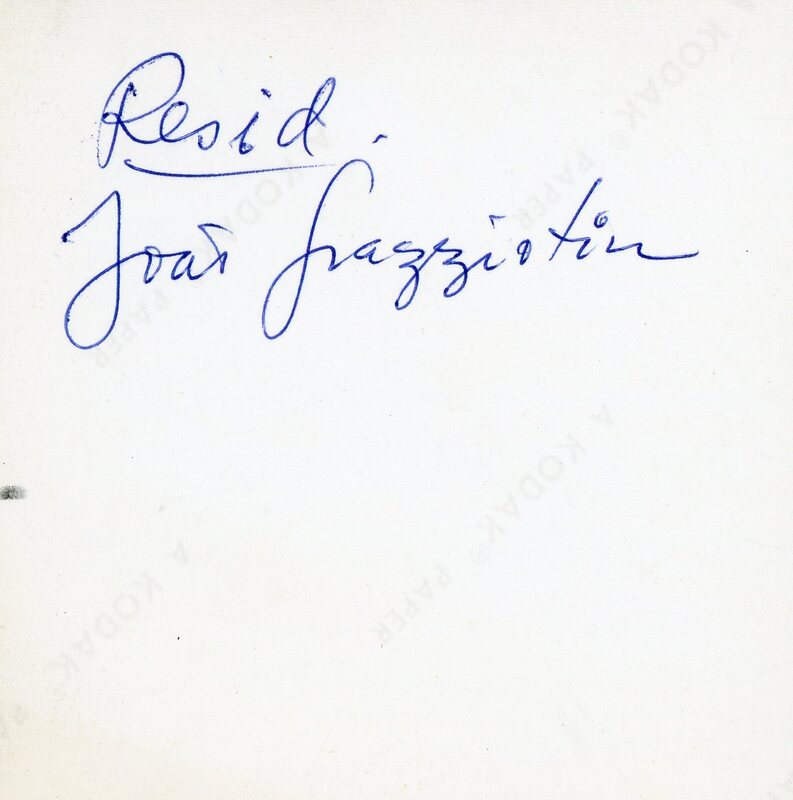 Resid.
João Grazziotin
A KODAK PAPER
A KODAK PAPER
A KODAK® PAPER
A KODAK® PAPER